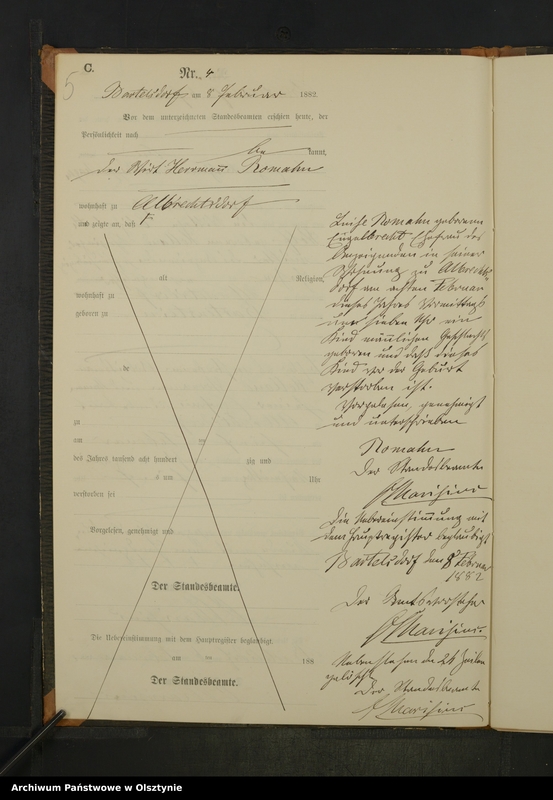 C.
5
Nr. 4
Bartelsdorf am 8 Februar 1882.
Vor dem unterzeichneten Standesbeamten erschien heute, der
Persönlichkeit nach
be kannt,
der Wirt Herrmann Romahn
wohnhaft zu Albrechtsdorf
und zeigte an, daß
alt Religion,
wohnhaft zu
geboren zu
de
zu
am
des Jahres tausend acht hundert zig und
um Uhr
verstorben sei
Vorgelesen, genehmigt und
Der Standesbeamte.
Die Uebereinstimmung mit dem Hauptregister beglaubigt.
am 188
Der Standesbeamte.
Luise Romahn geborene
Engelbrecht Ehefrau des
Anzeigenden in seiner
Wohnung zu Albrechts
dorf am achten Februar
dieses Jahres Vormittags
um sieben Uhr ein
Kind männlichen Geschlechts
geboren und daß dieses
Kind in der Geburt
verstorben ist.
Vorgelesen, genehmigt
und unterschrieben
Romahn
Der Standesbeamte
Die Uebereinstimmung mit
dem Hauptregister beglaubigt
Bartelsdorf den 8 Februar
1882
Der Amtsvorsteher
Nebenstehende 26 Zeilen
gelöscht
Der Standesbeamte
Archiwum Państwowe w Olsztynie